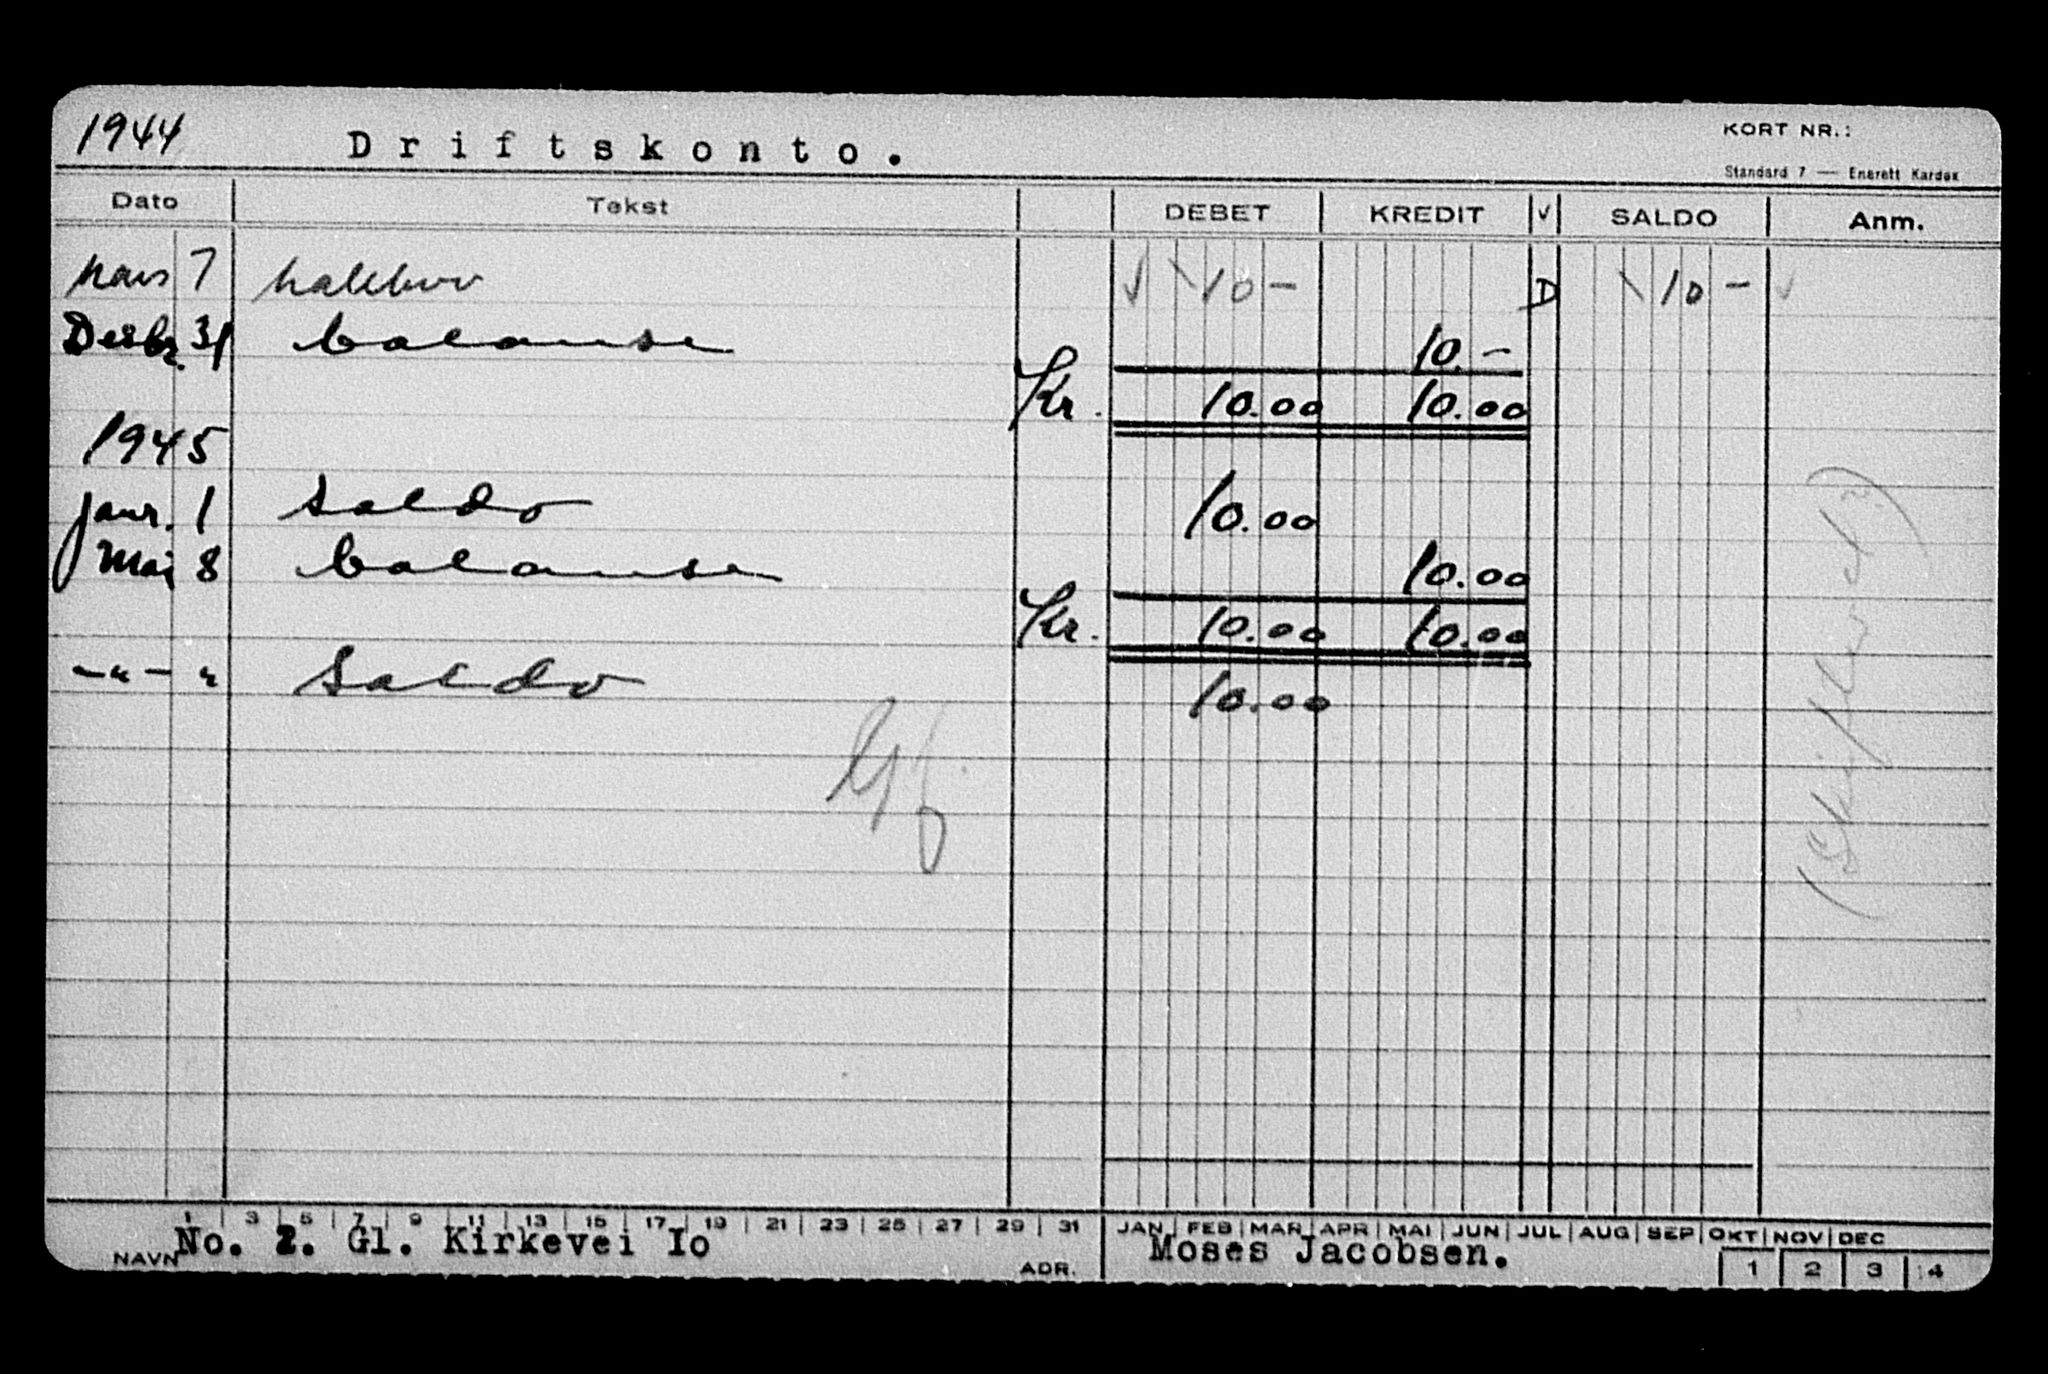 1944 Driftskonto. KORT NR.:
Standard 7 — Enerett Kardex
Dato Tekst DEBET KREDIT V SALDO Anm.
Mars 7 10 - D 10 -
Desbr. 31 balanse 10.-
Kr. 10.00 10.00
1945
Janr. 1 Saldo 10.00
Mai 8 balanse 10.00
Kr. 10.00 10.00
-"- " Saldo 10.00
1 3 5 7 9 11 13 15 17 19 21 23 25 27 29 31 JAN FEB MAR APR MAI JUN JUL AUG SEP OKT NOV DEC
NAVN No. 2. Gl. Kirkevei Io ADR. Moses Jacobsen. 1 2 3 4